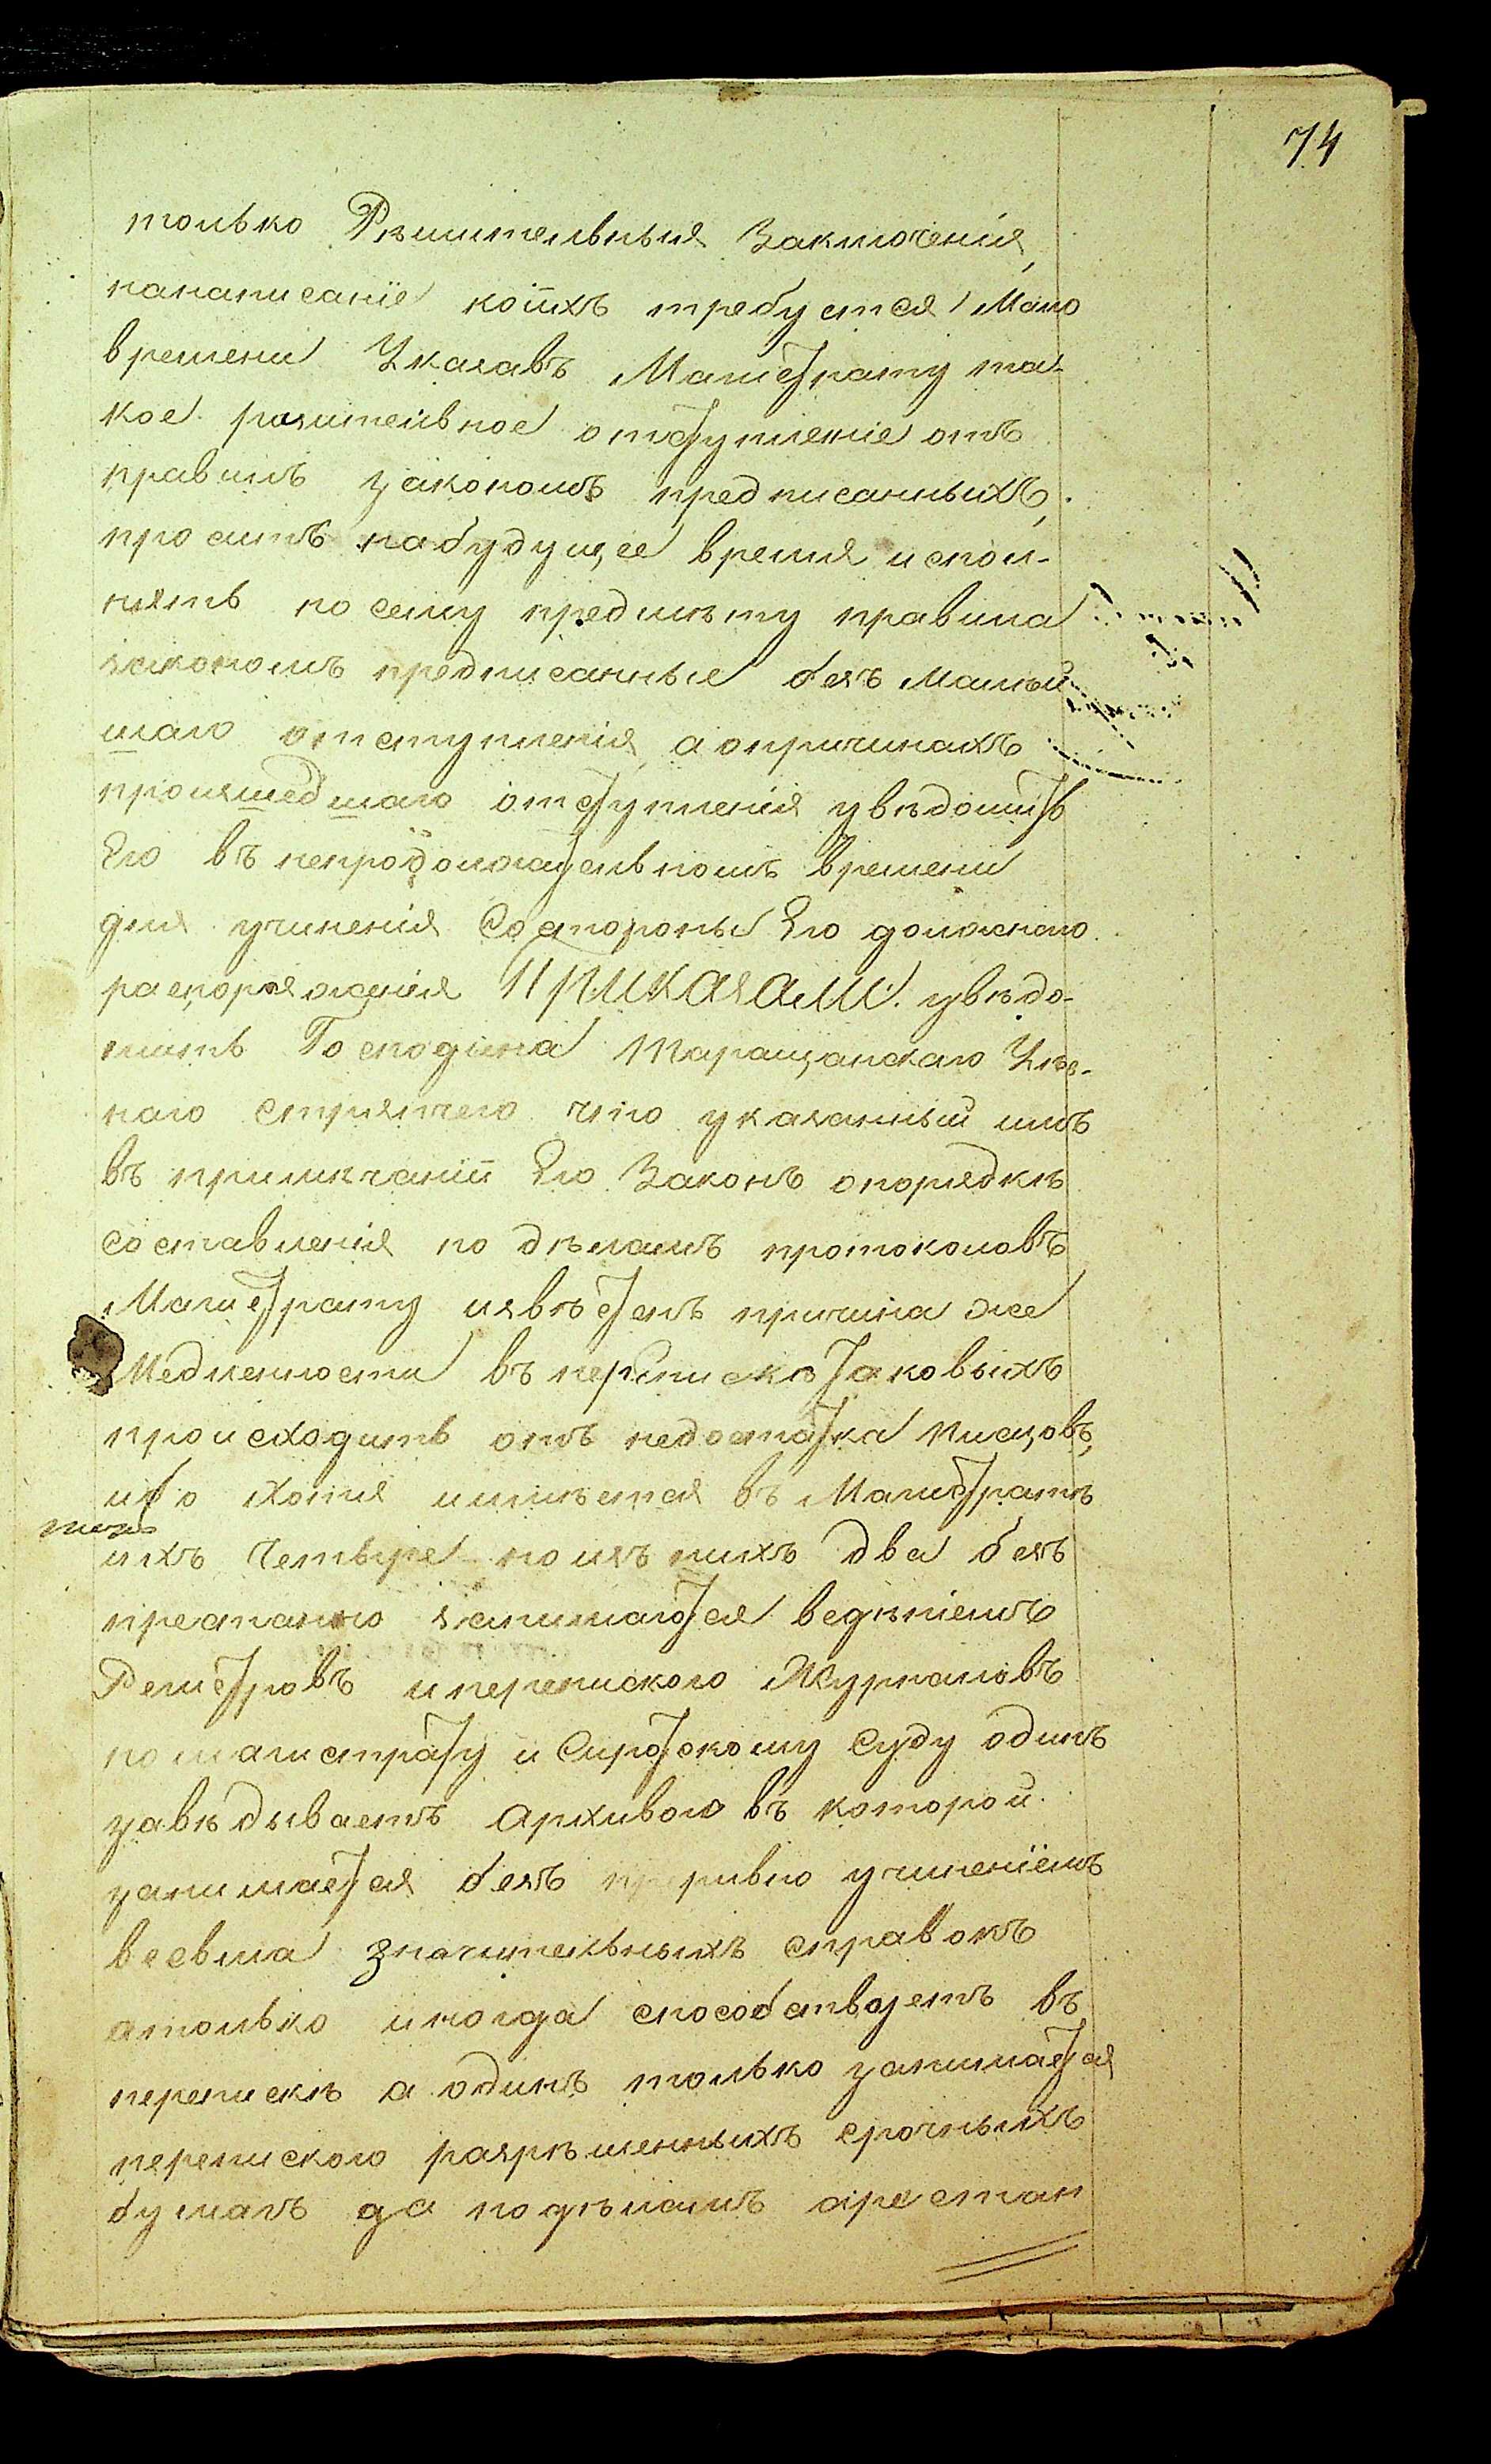 74
только Рѣшительныя Заключенія,
нанаписаніе коихъ требуется мало
времени Указавъ Магистрату та-
кое разительное отступленіе отъ
правилъ закономъ предписанныхъ,
проситъ набудущее время испол-
нять по сему предмѣту правила
закономъ предписанные безъ малѣй
шаго отступленія, а опричинахъ
произшедшаго отступленія увѣдомить
Его въ непродолжительномъ времени
для учиненія Состороны Его должнаго
распоряженія ПРИКАЗАЛИ: увѣдо-
мить Господина Таращанскаго Уѣз-
наго стряпчего что указанный имъ
въ примѣчаніи Его Законъ опорядкѣ
составленія по дѣламъ протоколовъ
Магистрату извѣстенъ причина же
Медленности въ перепискѣ таковыхъ
происходитъ отъ недостатка писцовъ,
ибо хотя имѣется въ Магистратѣ
ихъ Четыре но изъ нихъ два без
престанно занимаются веденіемъ
Регистровъ и перепискою Журналовъ
по магистрату и Сиротскому Суду одинъ
завѣдываетъ Архивою въ которой
занимается безъ прерывно учиненіемъ
весьма значительныхъ справокъ
атолько иногда способствуетъ въ
перепискѣ а одинъ только занимается
перепискою разрѣшенныхъ срочныхъ
бумагъ да подѣламъ арестан